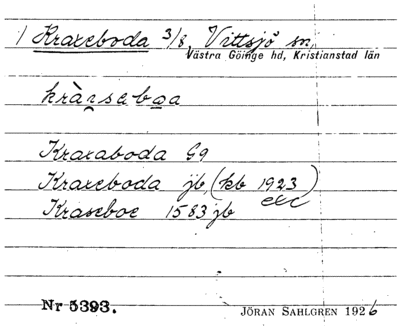 1 Kraxeboda 3/8 Vittsjö sn,
Västra Göinge hd, Kristianstad län
kràrsebɷa
Kraxaboda G9
Kraxeboda jb, (kb 1923)
etc
Kraseboe 1583 jb
Nr 5393.
JÖRAN SAHLGREN 1926